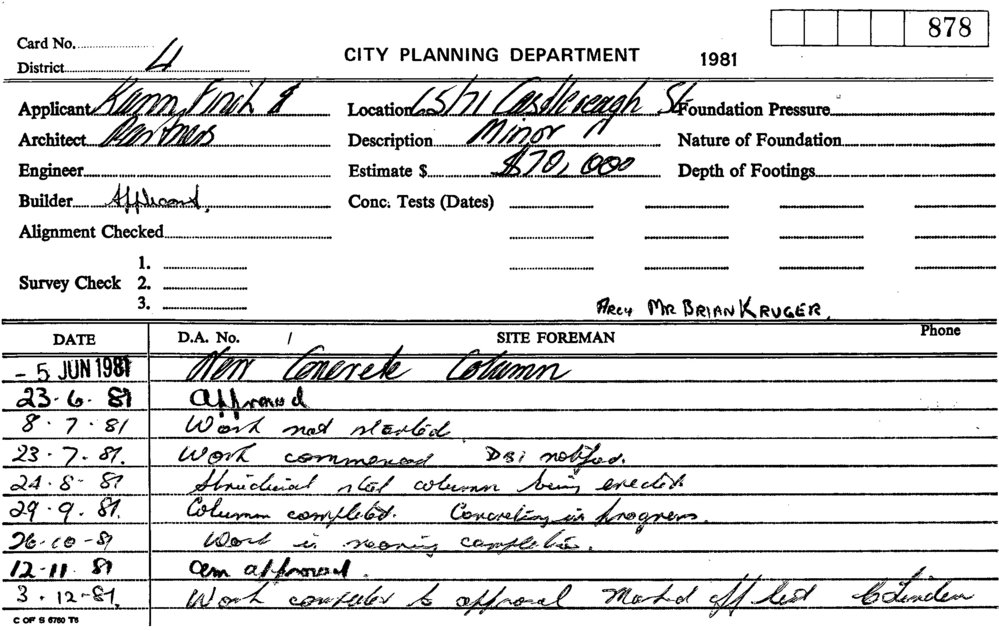 878
Card No.
District 4
CITY PLANNING DEPARTMENT 1981
Applicant Kann, Finch & Location 65/71 Castlereagh St Foundation Pressure
Architect Partners Description Minor Nature of Foundation
Engineer Estimate $ $70,000 Depth of Footings
Builder Applicant. Conc. Tests (Dates)
Alignment Checked
1.
Survey Check 2.
3.
Arch Mr BRIAN KRUGER.
DATE D.A. No. / SITE FOREMAN Phone
- 5 JUN 1981 New Concrete Column
23.6.81 Approved
8.7.81 Work not started
23.7.81. Work commenced DSI notified.
24.8-81 Structural steel column being erected
29.9.81. Column completed. Concreting in progress.
26-10-81 Work is nearing completion.
12-11 81 am approved.
3.12-81. Work completed to approval Marked off list
C OF S 6760 T6